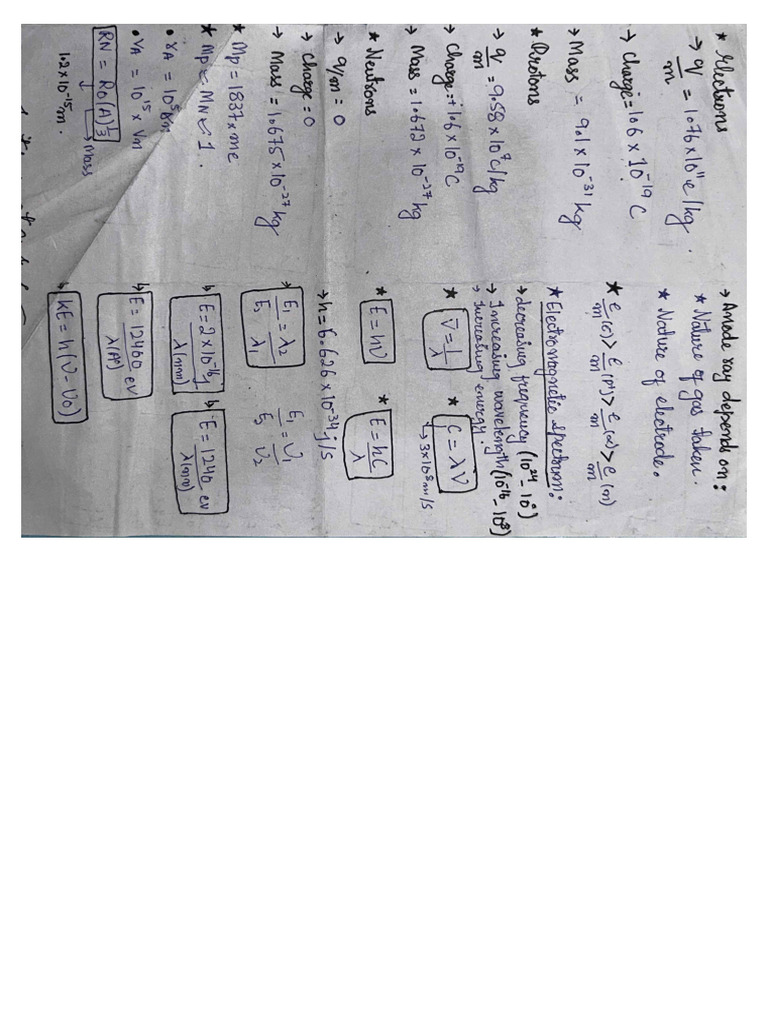 * Electrons
→ q/m = 1.76 × 10^11 e/kg.
→ Charge = 1.6 × 10^-19 C
→ Mass = 9.1 × 10^-31 kg
* Protons
→ q/m = 9.58 × 10^7 c/kg
→ Charge = +1.6 × 10^-19 C
→ Mass = 1.672 × 10^-27 kg
* Neutrons
→ q/m = 0
→ Charge = 0
→ Mass = 1.675 × 10^-27 kg
* Mp = 1837 × me
* Mp ~ MN ~ 1.
• VA = 10^15 × Vm
RN = R0(A)^1/3
→ Mass
1.2 × 10^-15 m.
→ Anode ray depends on:
* Nature of gas taken.
* Nature of electrode.
* e/m (e) > e/m (P) > e/m (α) > e/m (n)
* Electromagnetic spectrum:
→ decreasing frequency (10^24 - 10^0)
→ Increasing wavelength (10^-16 - 10^8)
→ Increasing energy.
* ν̄ = 1/λ
* C = λν
→ 3×10^8 m/s
* E = hν
* E = hC/λ
→ h = 6.626 × 10^-34 j/s
→ E1/E2 = λ2/λ1
E1/E2 = ν1/ν2
↳ E = 2×10^-16 j/λ(nm)
↳ E = 1240/λ(nm) ev
↳ E = 12400/λ(A°) ev
↳ KE = h(ν - ν0)